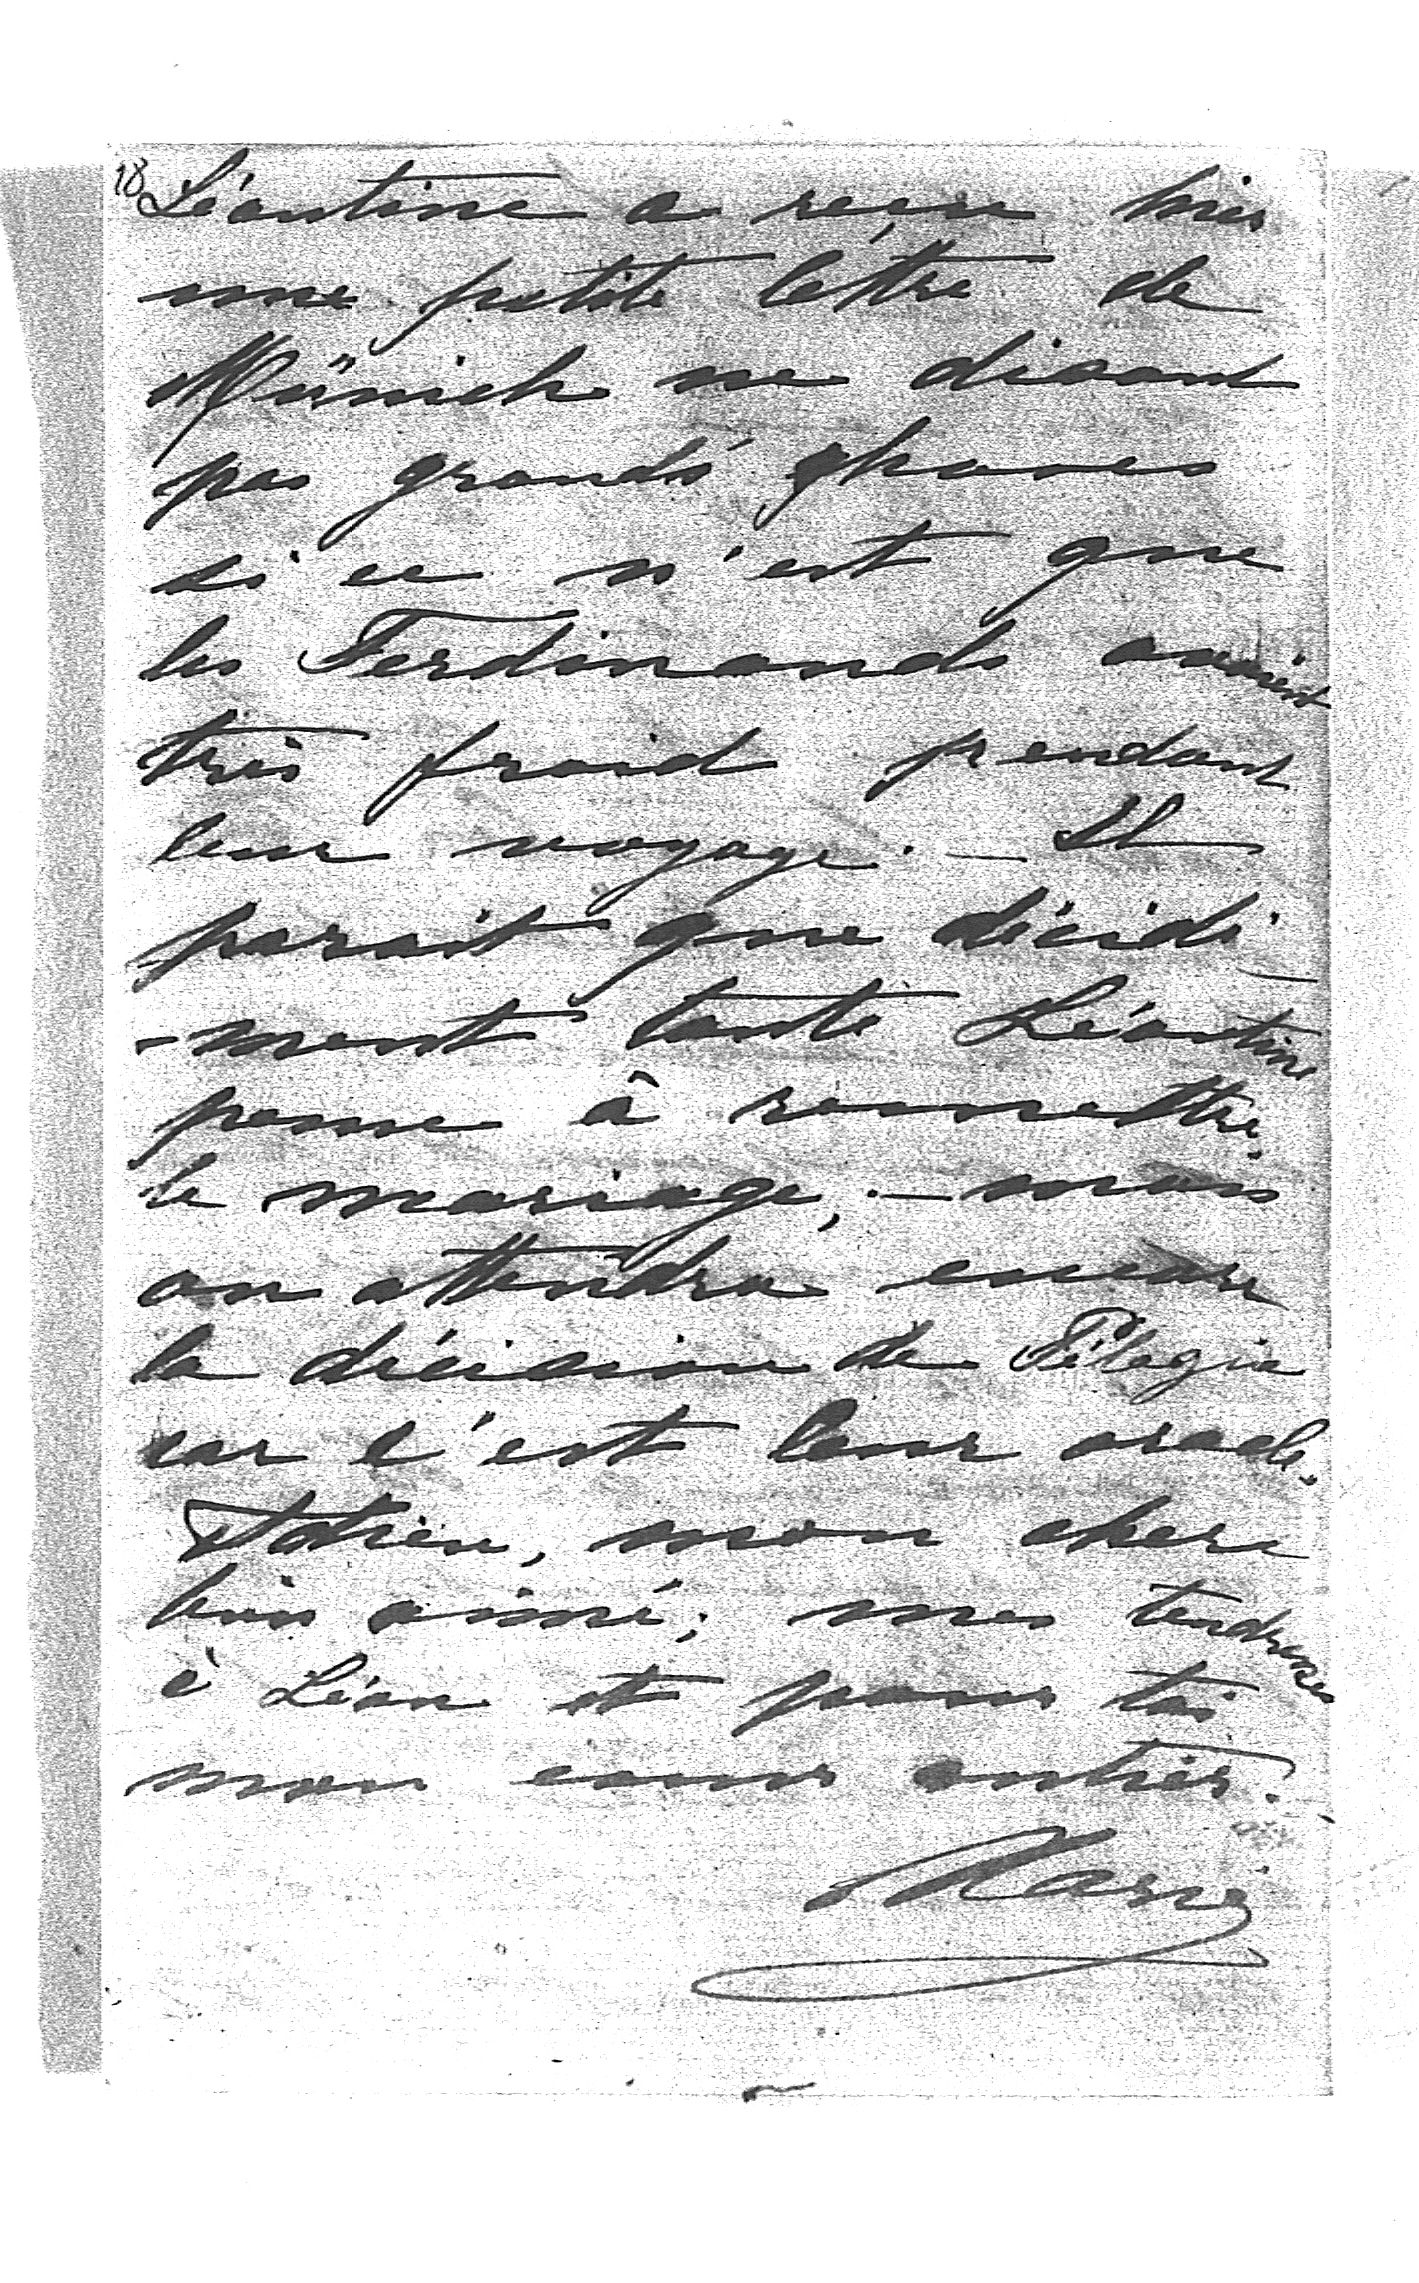 18
Léontine a reçu hier
une petite lettre de
Münich ne disant
pas grand' choses
si ce n'est que
les Ferdinands avaient
très froid pendant
leur voyage. — Il
parait que décidé-
-ment tante Léontine
pense à remettre
le mariage, — mais
on attendra encore
la décision de Pélagie
car c'est leur oracle.
Adieu, mon cher
bien aimé; mes tendresses
à Léon et pour toi
mon coeur entier.
Marie